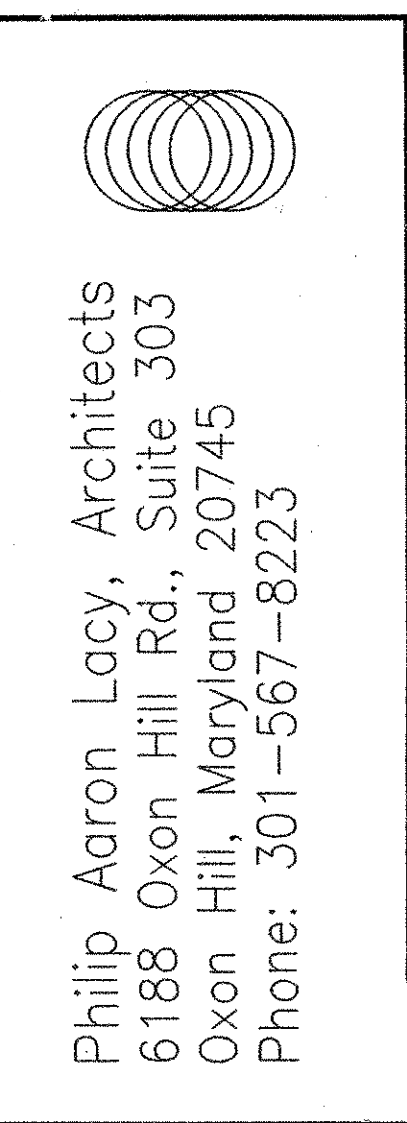 Philip Aaron Lacy, Architects
6188 Oxon Hill Rd., Suite 303
Oxon Hill, Maryland 20745
Phone: 301-567-8223